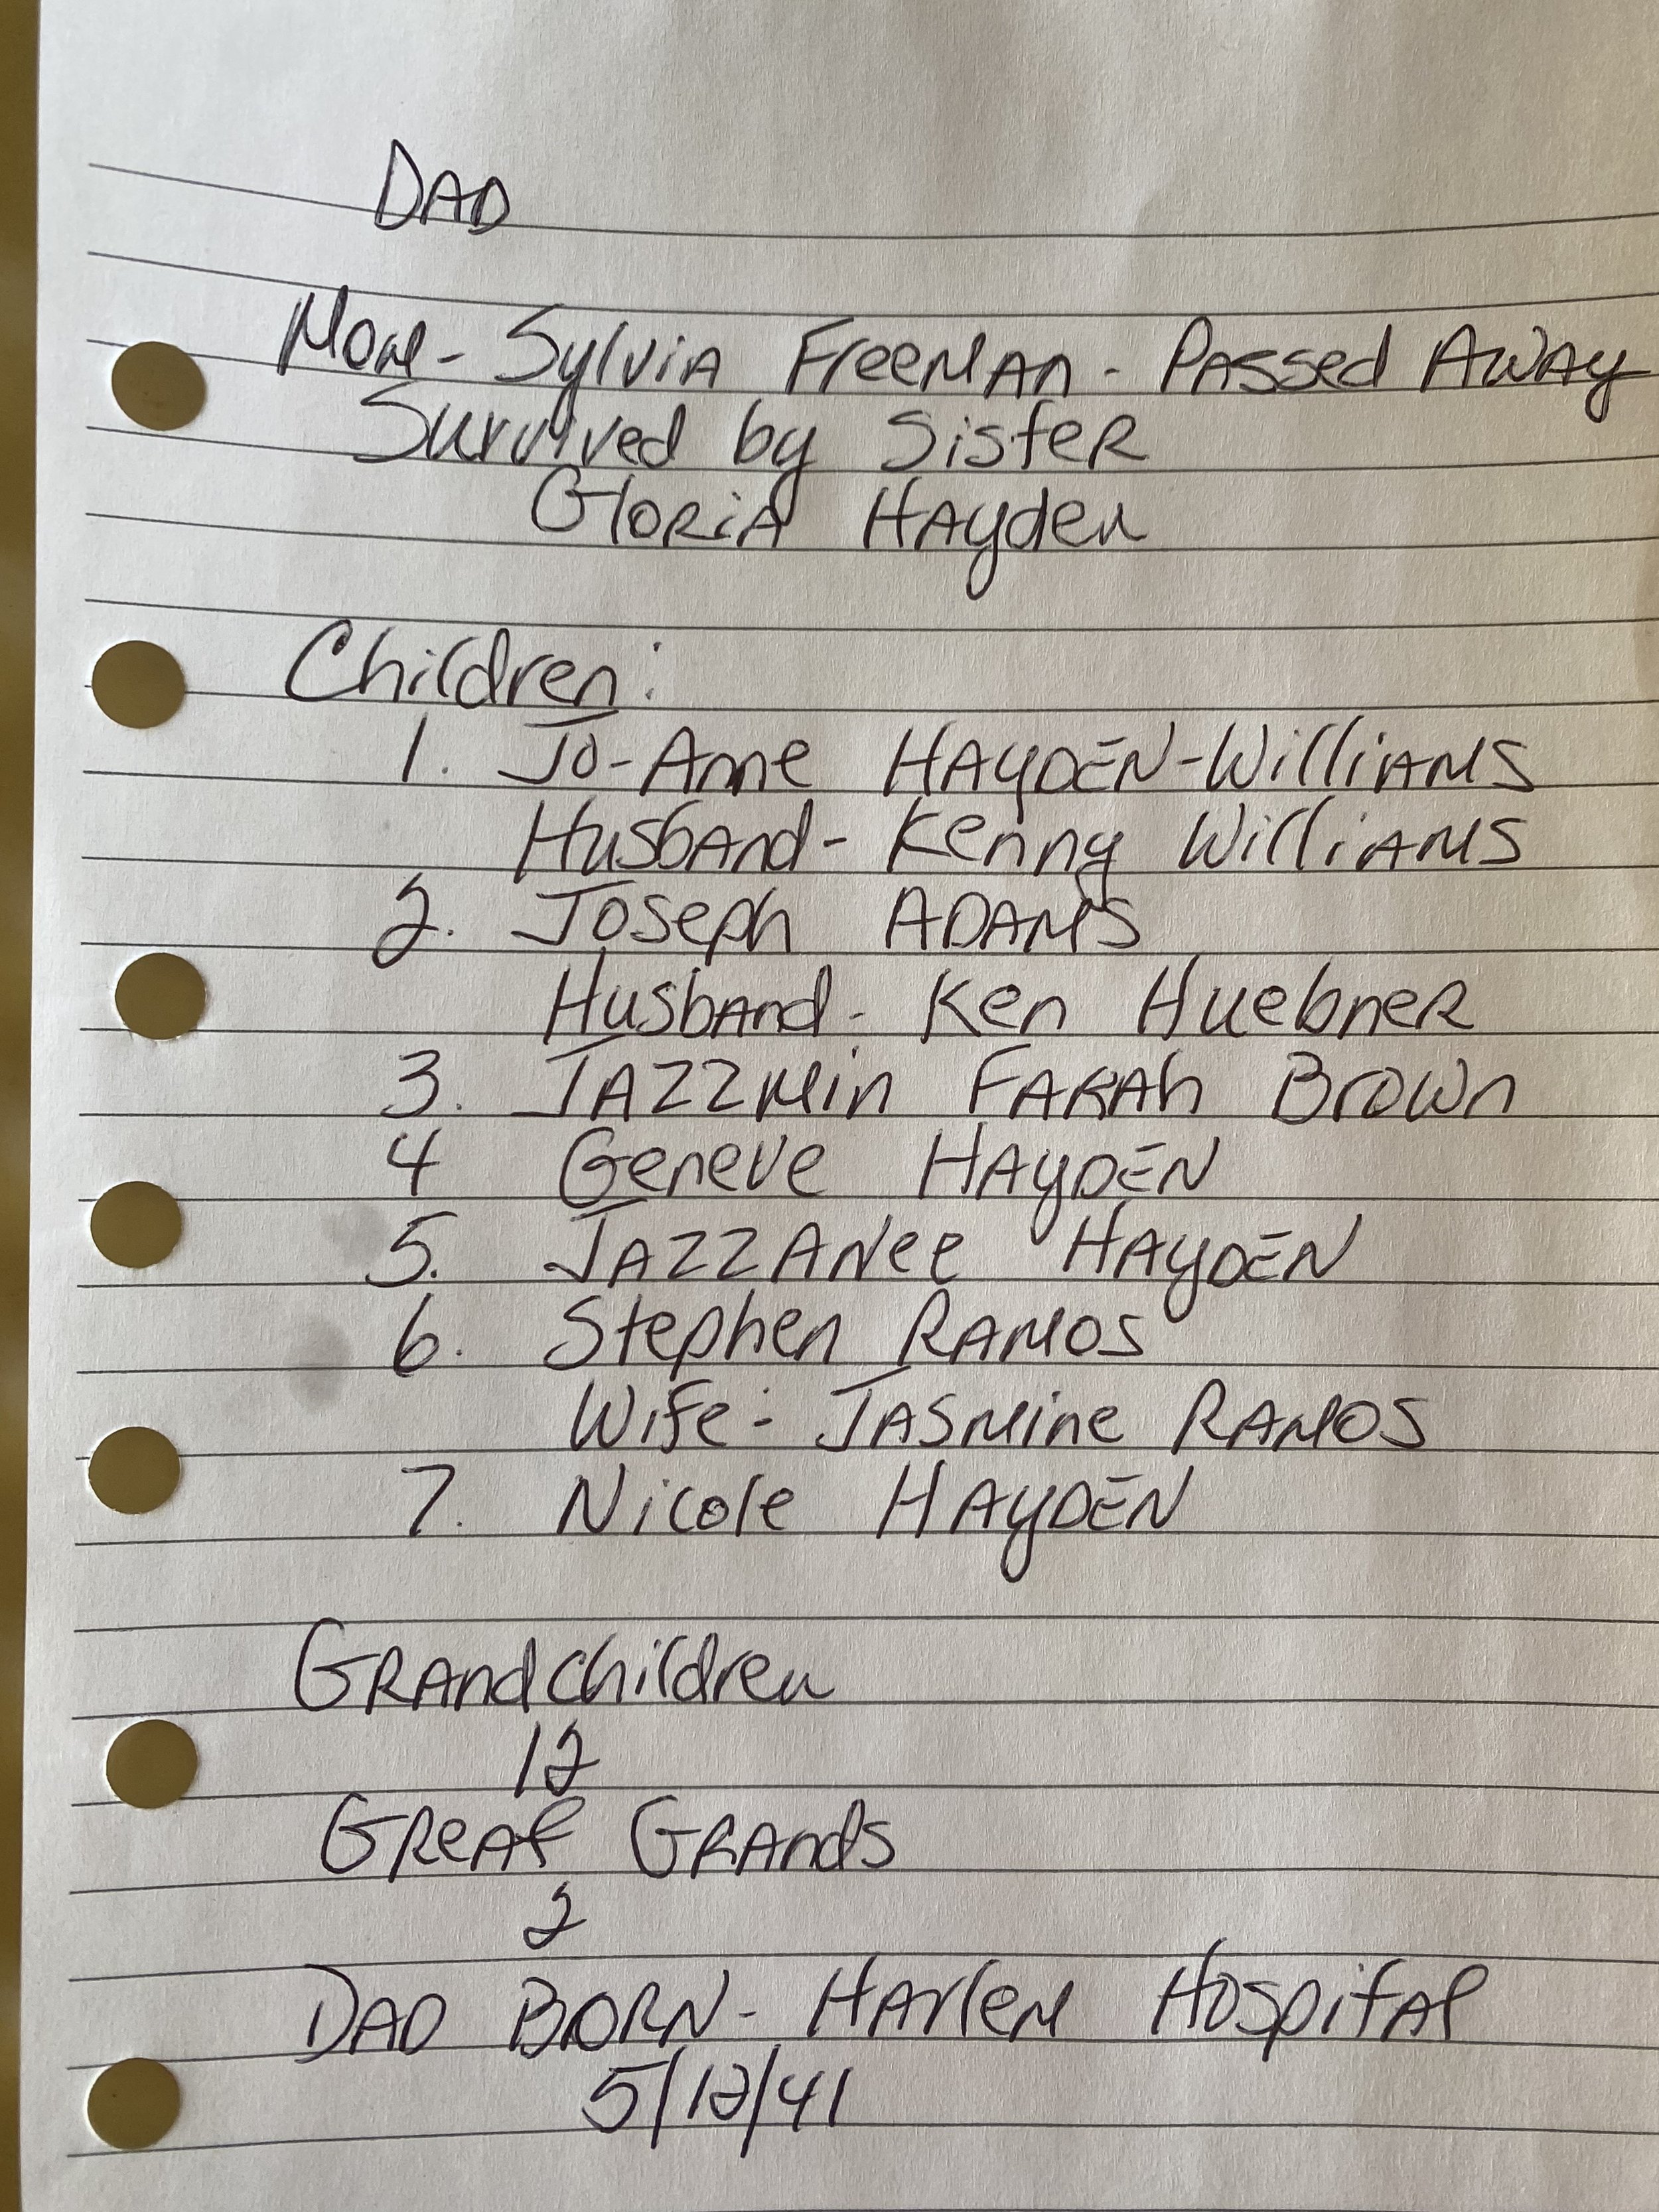 DAD
Mom- Sylvia Freeman - Passed Away
Survived by Sister
Gloria Hayden
Children:
1. Jo-Anne Hayden-Williams
Husband- Kenny Williams
2. Joseph Adams
Husband- Ken Huebner
3. Jazzmin Farah Brown
4 Geneve Hayden
5. Jazzanee Hayden
6. Stephen Ramos
Wife- Jasmine Ramos
7. Nicole Hayden
Grandchildren
12
Great Grands
2
DAD BORN- Harlem Hospital
5/12/41